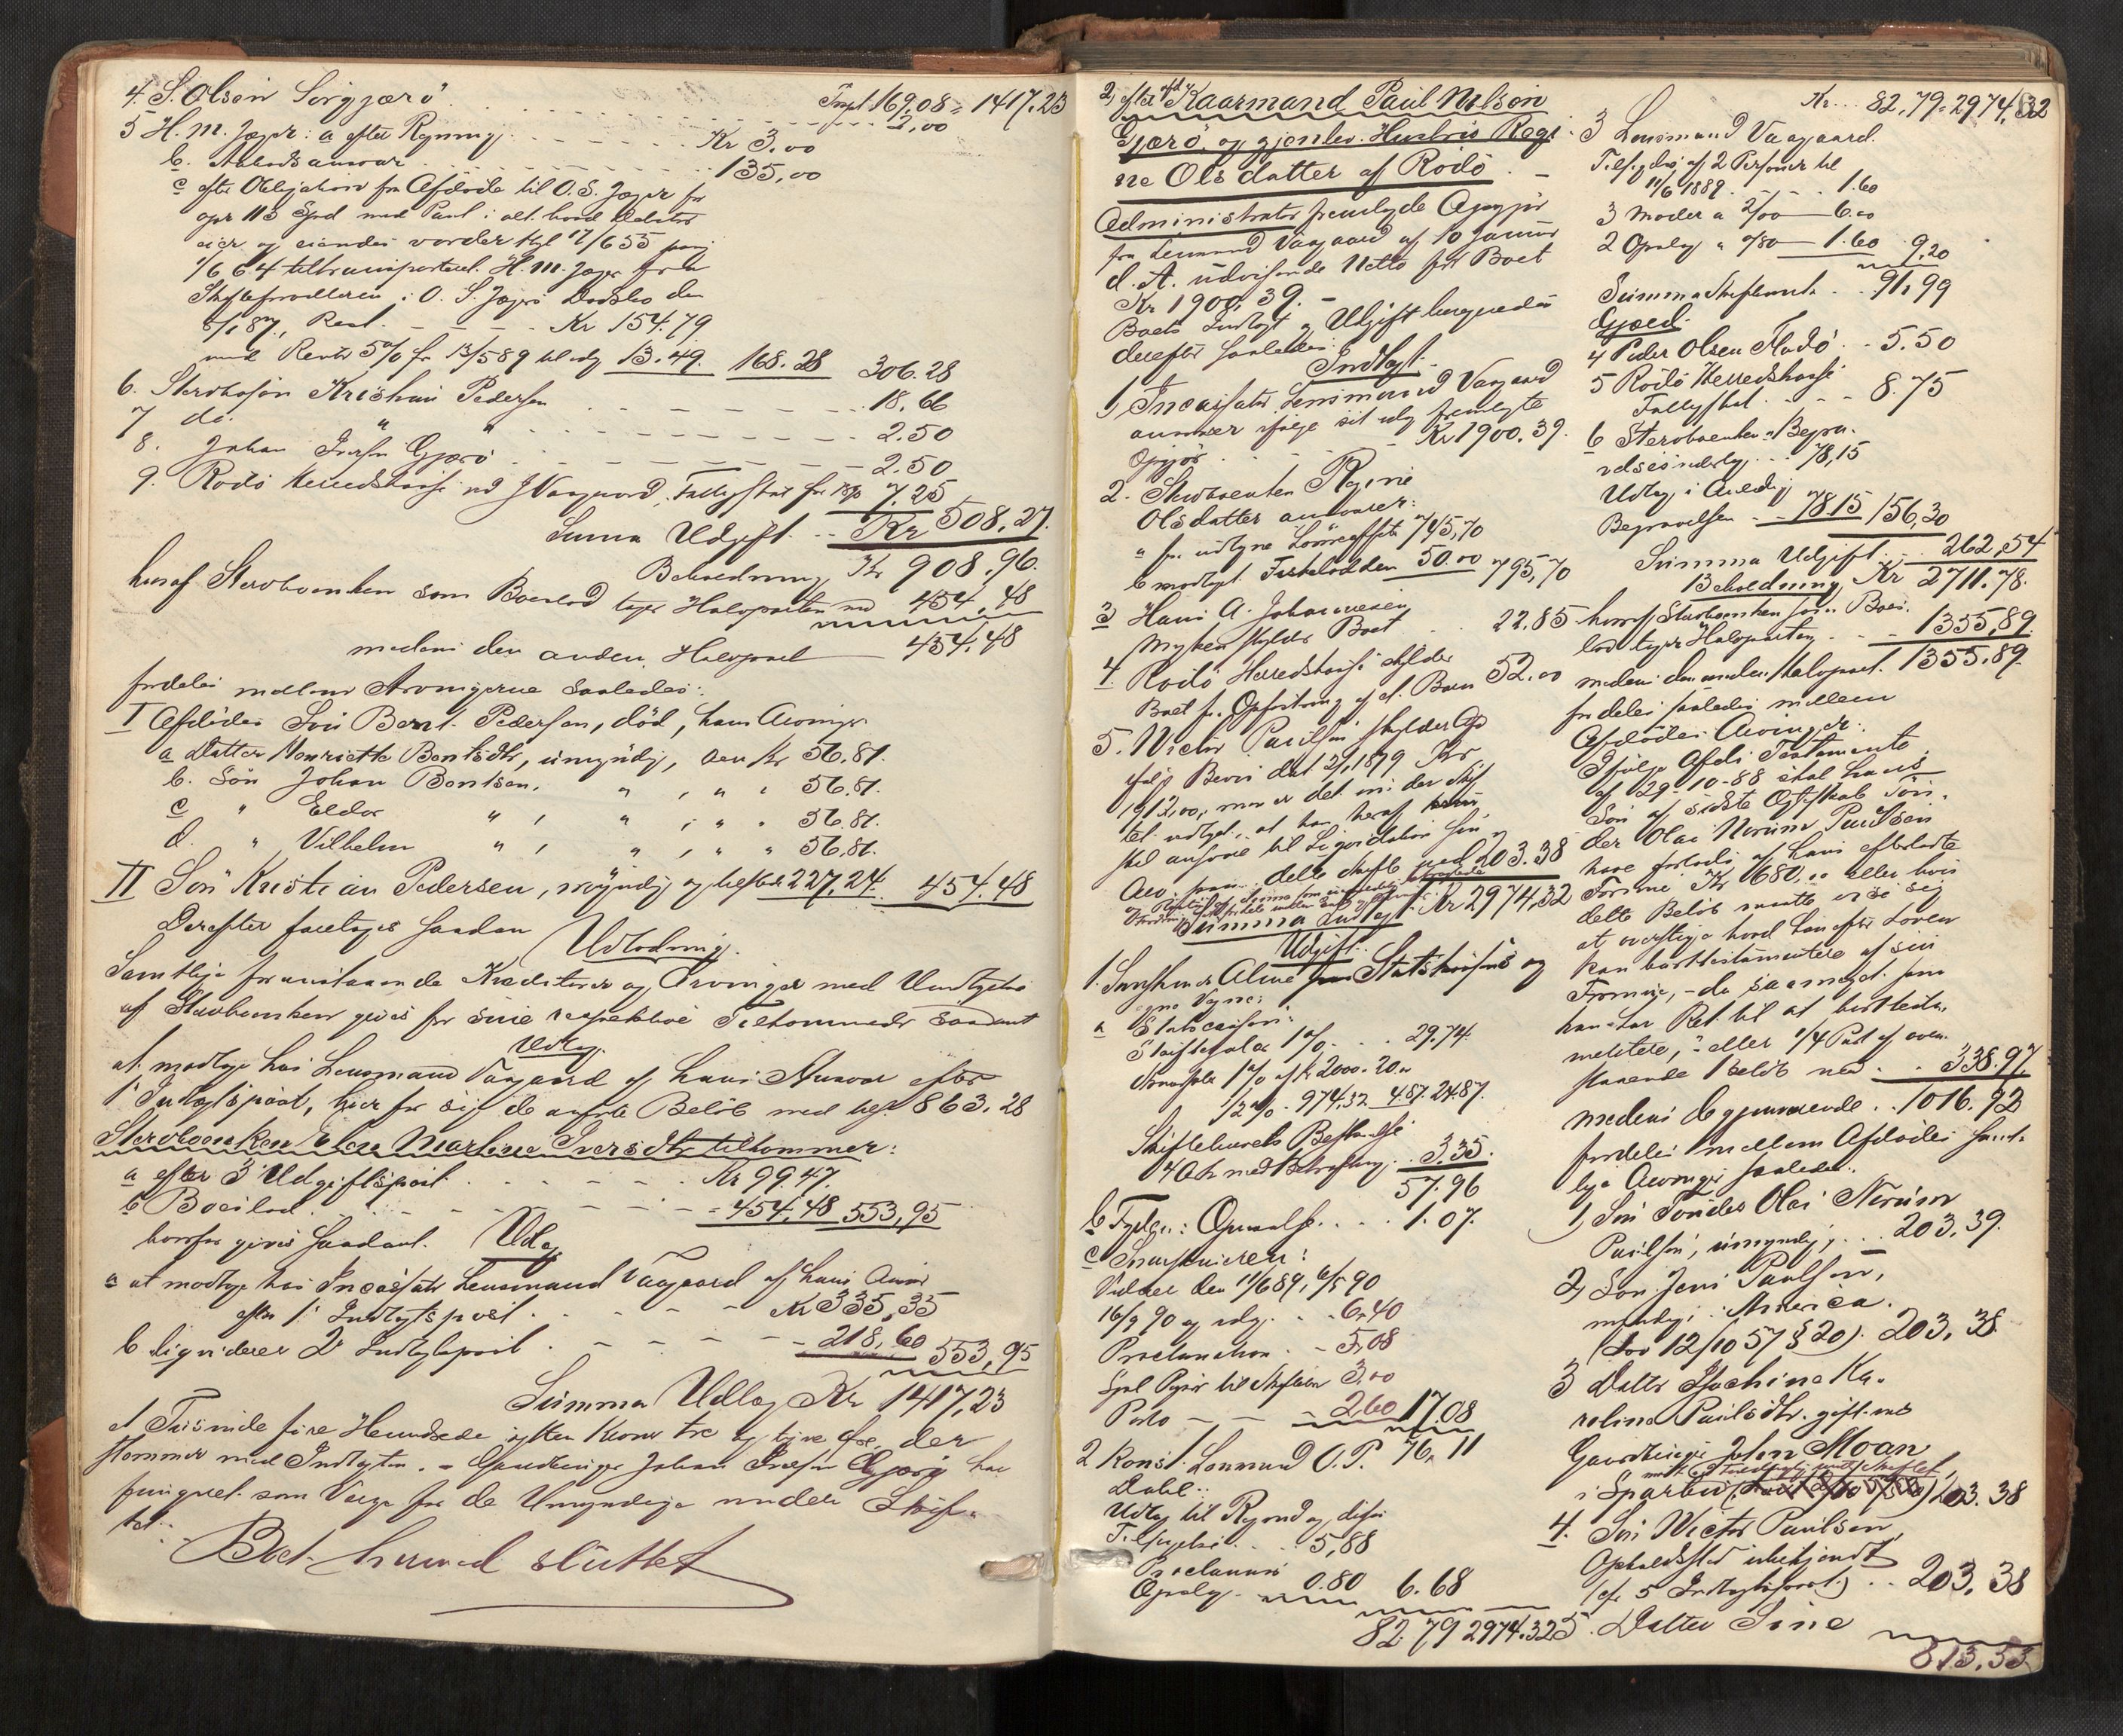 4. S. Olsen Sørgjærö 2,00
Trspt 169.08 = 1417.23
5 H. M. Jæger: a efter Regning Kr 3.00
b. Arbeidsansvar 135,00
c efter Obligation fra Afdøde til O. S. Jæger for
opr 113 Spd med Pant i alt hvad Debitor
eier og eiendes vorder tgl 17/6 55
1/6 64 transporteret H. M. Jæger fra
Skifteforvalteren i O. S. Jægers Dødsbo den
5/1 87, Rest Kr 154.79
med Renter 5% fra 13/5 89 til idag 13.49. 168.28 306.28
6. Stervbosøn Kristian Pedersen 18.66
7 do. " " 2.50
8. Johan Iversen Gjærö 2.50
9. Rödö Herredskasse ved Vaagaard, Fattigskat 7.25
Suma Udgift Kr 508,27.
Beholdning Kr 908.96.
hvoraf Stervboenken som Boeslod tager Halvparten med 454,48
medens den anden Halvpart 454,48
fordeles mellem Arvingerne saaledes:
I Afdødes Sön Bernt Pedersen, död, hans Arvinger
a Datter Henriette Bentsdtr, umyndig, Kr 56.81.
b. Sön Johan Bentsen, " , " " 56.81.
c " Elder " , " , " " 56.81.
d. " Vilhelm " , " , " " 56,81.
II Sön Kristian Pedersen, myndig og tilstede 227,24. 454.48
Derefter foretages saadan
Udlodning.
Samtlige foranstaaende Kreditorer og Arvinger med Undtagelse
af Stervboenken gives for sine respektive Tilkommender saadant
Udlæg.
at modtage hos Lensmand Vaagaard af hans Ansvar efter
1 Indtægtspost, hver for sig de anførte Beløb med tils 863.28
Stervboenken Elen Martine Iversdtr tilkommer:
a efter 3 Udgiftspost Kr 99.47.
b Boeslod 454,48 553,95
hvorfor gives saadant Udlæg
a at modtage hos Incassator Lensmand Vaagaard af hans Ansvar
efter 1 Indtægtspost Kr 335,35
b liqviderer 2 Indtægtspost 218,60 553,95
Summa Udlæg Kr 1417,23
et Tusinde fire Hundrede sytten Kroner tre og tyve Øre, der
stemmer med Indtægten. - Gaardbruger Johan Iversen Gjærö har
fungeret som Værge for de Umyndige under Skif-
tet.
Boet hermed sluttet
2, efter afdøde Kaarmand Paul Nilsen
Gjærö, og gjenlev. Hustru Regi-
ne Olsdatter af Rödö. -
Administrator fremlagde Opgjör
fra Lensmand Vaagaard af 10 Januar
d. A. udvisende Netto for Boet
Kr 1900.39. -
Boets Indtægt og Udgift beregnedes
derefter saaledes:
Indtægt.
1, Incassator Lensmand Vaagaard
ansvarer ifølge sit idag fremlagte
Opgjör Kr 1900.39.
2. Stervboenken Regine
Olsdatter ansvarer:
a for udtagne Løsøreeffekter 745,70
b modtagt Fiskelodden 50.00 795,70
3 Hans A. Johannesen
Myken skylder Boet 22.85
4. Rödö Herredskasse skylder
Boet for Opfostring af et Barn 52.00
5. Victor Paulsen skylder
ifølge Bevis dat 2/1 1879 Kr
1912,00, men er det under Skif-
tet udtagt, at han heraf kun
skal ansvare til Liqvidation sin
Arv paa dette Skifte med 203.38
Summa Indtægt Kr 2974,32
Udgift.
1. Sorenskriver Alme paa Statskassens og
egne Vegne:
a Statscassen:
Skifteafgift 1% 29.74.
Arveafgift 1% af Kr 2000 - 20.00
½% - 974,32 4.87. 24.87.
Skiftebrevets Beskrivelse
4 Ark med Bekræftning 3.35.
57,96
b Fyldgj: Opmaals 1.07.
c Sorenskriveren:
Vidner den 11/6 89, 6/5 90
16/9 90 og idag 6.40
Proclamation 5,08
Spl Papir til Skiftebrev 3,00
Porto 2.60 17.08
76,11
2 Konst. Lensmand O. P.
Dahl:
Udlæg til Regnord og
Tilsigelse 5,88
Proclamas
Opslag 0.80 6.68
82.79 2974.32
Kr 82,79 = 2974,32
3 Lensmand Vaagaard.
Tilsigelse af 2 Personer til
11/6 1889 1.60
3 Møder a 2/00 6.00
2 Opslag a 0/80 1.60 9,20
Summa Skifteomk. 91,99
Gjæld.
4 Peder Olsen Fladö 5.50
5 Rödö Herredskasse
Fattigskat 8.75
6 Stervboenken Begra-
velsesudlæg 78,15
Udlæg i Anledning
Begravelsen 78.15 156,30
Summa Udgift 262,54
Beholdning Kr 2711.78.
hvoraf Stervboenken som Boes-
lod tager Halvparten 1355,89.
medens den anden Halvpart 1355,89.
fordeles saaledes mellem
Afdødes Arvinger:
Ifølge Afdødes Testamente
af 29-10-88 skal hans
Søn af sidste Ægteskab Tön-
der Olai Norum Paulsen
have forlods af hans efterladte
Formue Kr 1680.00 eller hvis
dette Beløb maatte vise sig
at overstige hvad han efter Loven
kan borttestamentere af sin
Formue, - da saameget som
han har Ret til at borttesta-
mentere, - eller ¼ Part af oven-
staaende Beløb med 338.97.
medens de gjenværende 1016.92
fordeles mellem Afdødes samt-
lige Arvinger saaledes:
1, Sön Tönder Olai Norum
Paulsen, umyndig, 203,39.
2, Søn Jens Paulsen,
myndig i Amerika.
(Lov 12/10 57 § 20). 203,38.
3 Datter Jochine Ka-
roline Paulsdtr. gift med
Gaardbruger John Moan
i Sparbu 203.38
4. Sön Victor Paulsen,
Opholdssted ubekjendt
(cfr 5 Indtægtspost) 203,38
5. Datter Sine
813.53